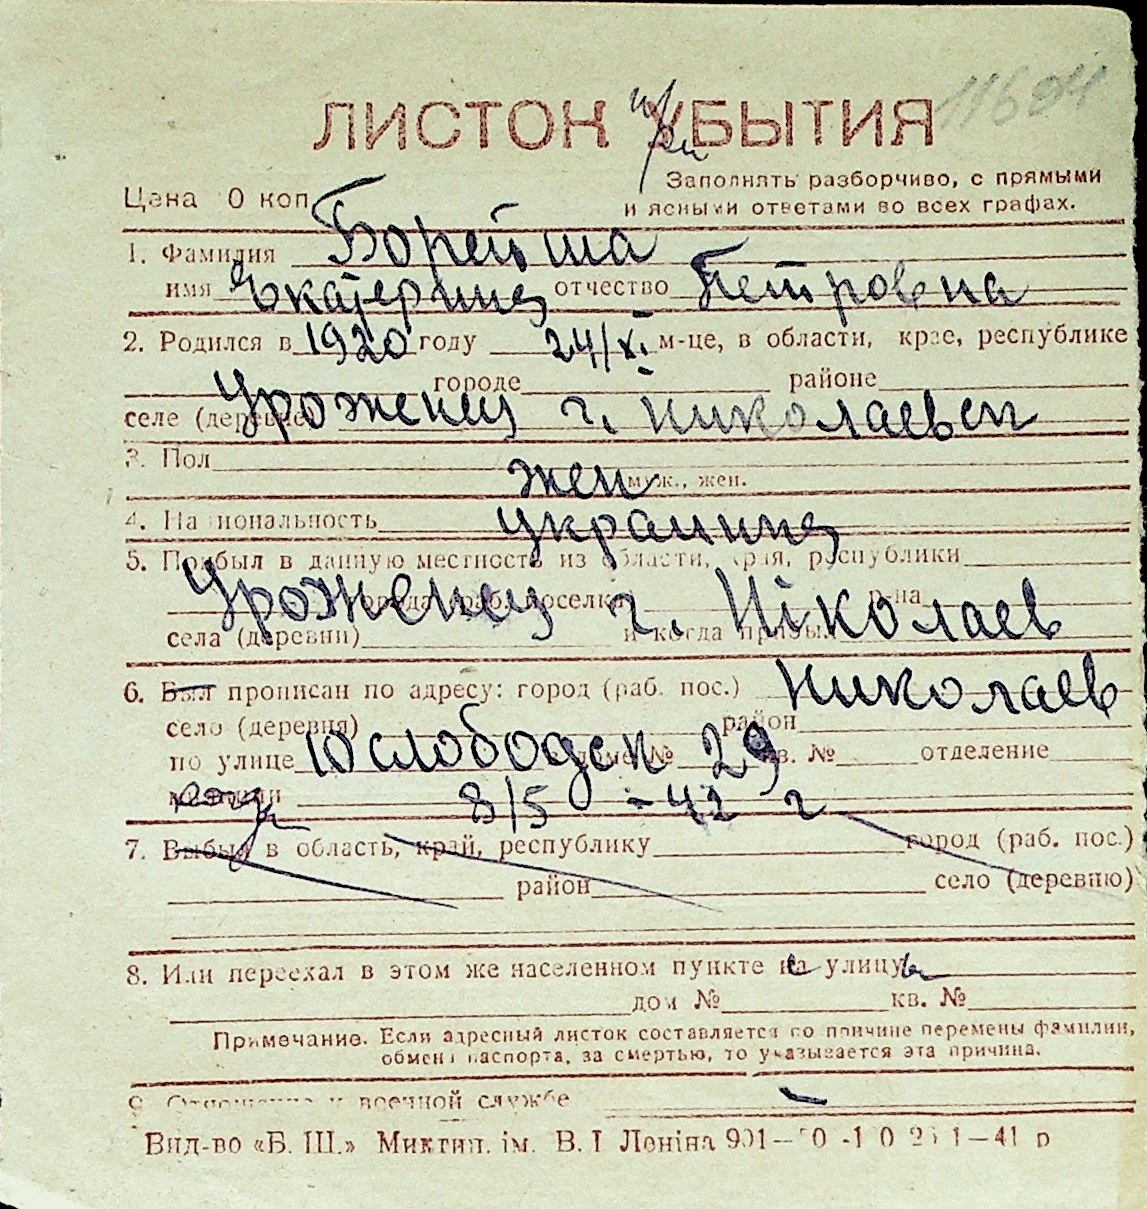 11694
ЛИСТОК УБЫТИЯ
Цена 0 коп.
Заполнять разборчиво, с прямыми
и ясными ответами во всех графах.
1. Фамилия Борейша
имя Екатерина отчество Петровна
2. Родился в 1920 году 24/XI м-це, в области, крае, республике
городе районе
селе (деревне) Уроженец г. Николаевси
3. Пол жен
муж., жен.
4. Национальность украинка
5. Прибыл в данную местность из области, края, республики
города (раб. поселка) р-на
Уроженец г. Ніколаев
села (деревни) и когда прибыл
6. Был прописан по адресу: город (раб. пос.) Николаев
село (деревня) район
по улице 10 слободск дом № 29 кв. № отделение
милиции 8/5 - 42 г
7. Выбыл в область, край, республику город (раб. пос.)
район село (деревню)
8. Или переехал в этом же населенном пункте на улицу
дом № кв. №
Примечание. Если адресный листок составляется по причине перемены фамилии,
обмена паспорта, за смертью, то указывается эта причина.
9. Отношение к военной службе —
Вид-во «Б. Ш.» Миктип. ім. В. І Леніна